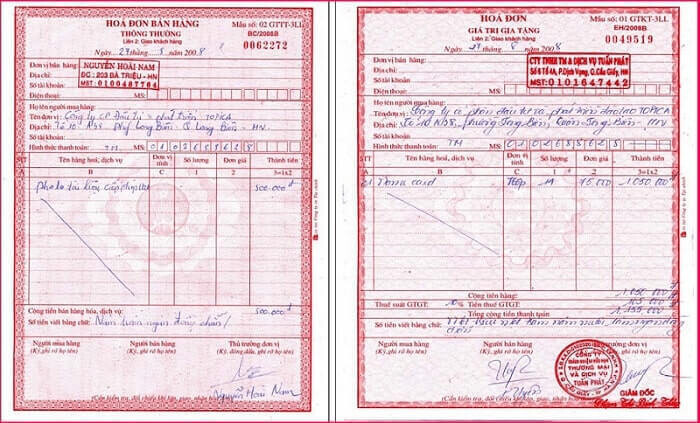 HOÁ ĐƠN BÁN HÀNG
THÔNG THƯỜNG
Liên 2: Giao khách hàng
Mẫu số: 02 GTTT-3LL
BC/2008B
0062272
Ngày 27 tháng 5 năm 2008
Đơn vị bán hàng:
NGUYỄN HOÀI NAM
Địa chỉ:
ĐC : 203 BÀ TRIỆU - HN
Số tài khoản
MST: 0100487764
Điện thoại:
MS:
Họ tên người mua hàng:
Tên đơn vị: Công ty CP Đầu Tư & phát triển TOPICA
Địa chỉ: Tổ 10 Long Biên Q Long Biên - HN
Số tài khoản
Hình thức thanh toán: TM MS:
STT
Tên hàng hoá, dịch vụ
Đơn vị tính
Số lượng
Đơn giá
Thành tiền
A B C 1 2 3=1x2
500.000đ
Cộng tiền bán hàng hóa, dịch vụ: 500.000đ
Số tiền viết bằng chữ: Năm trăm ngàn đồng chẵn/
Người mua hàng
(Ký, ghi rõ họ tên)
Người bán hàng
(Ký, ghi rõ họ tên)
Thủ trưởng đơn vị
(Ký, đóng dấu, ghi rõ họ tên)
Nguyễn Hoài Nam
HOÁ ĐƠN
GIÁ TRỊ GIA TĂNG
Liên 2: Giao khách hàng
Mẫu số: 01 GTKT-3LL
EH/2008B
0049519
Ngày 27 tháng 8 năm 2008
Đơn vị bán hàng:
CTY TNHH TM & DỊCH VỤ TUẤN PHÁT
Địa chỉ:
Số 6 Tổ 4A, P.Dịch Vọng, Q.Cầu Giấy, HN
Số tài khoản
MST: 0101647442
Điện thoại:
MS:
Họ tên người mua hàng:
Tên đơn vị: Công ty cổ phần đầu tư và phát triển TOPICA
Địa chỉ: Tổ 10 phường Long Biên, Quận Long Biên - HN
Số tài khoản
Hình thức thanh toán: TM MS:
STT
Tên hàng hoá, dịch vụ
Đơn vị tính
Số lượng
Đơn giá
Thành tiền
A B C 1 2 3=1x2
card 14 75.000 1.050.000đ
Cộng tiền hàng: 1.050.000đ
Thuế suất GTGT: 10% Tiền thuế GTGT: 105.000đ
Tổng cộng tiền thanh toán 1.155.000đ
Số tiền viết bằng chữ: Một triệu một trăm năm mươi lăm ngàn đồng
Người mua hàng
(Ký, ghi rõ họ tên)
Người bán hàng
(Ký, ghi rõ họ tên)
CÔNG TY
TRÁCH NHIỆM HỮU HẠN
THƯƠNG MẠI
VÀ DỊCH VỤ
TUẤN PHÁT
GIÁM ĐỐC